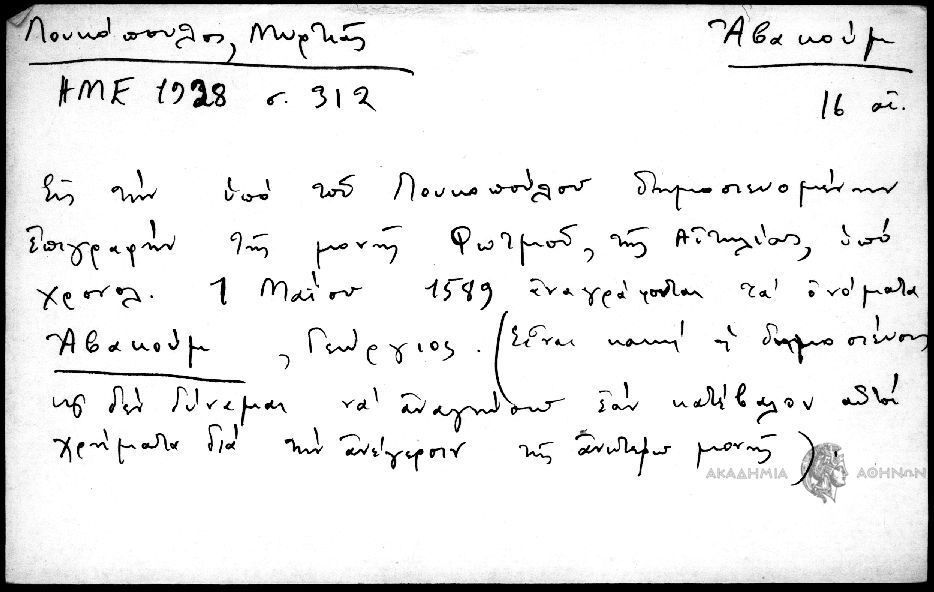 Λουκόπουλος, Μυρτιάς
Ἀβακούμ
ΗΜΕ 1928 σ. 312
16 αἰ.
Εἰς τὴν ὑπὸ τοῦ Λουκοπούλου δημοσιευομένην
ἐπιγραφὴν τῆς μονῆς Φωτμοῦ, τῆς Αἰτωλίας, ὑπὸ
χρονολ. 1 Μαΐου 1589 ἀναγράφονται τὰ ὀνόματα
Ἀβακούμ, Γεώργιος. (Εἶναι κακὴ ἡ δημοσίευσις
κ δὲν δύναμαι νὰ ἀναγνώσω ἐὰν κατέβαλον αὐτοὶ
χρήματα διὰ τὴν ἀνέγερσιν τῆς ἀνωτέρω μονῆς).
ΑΚΑΔΗΜΙΑ ΑΘΗΝΩΝ